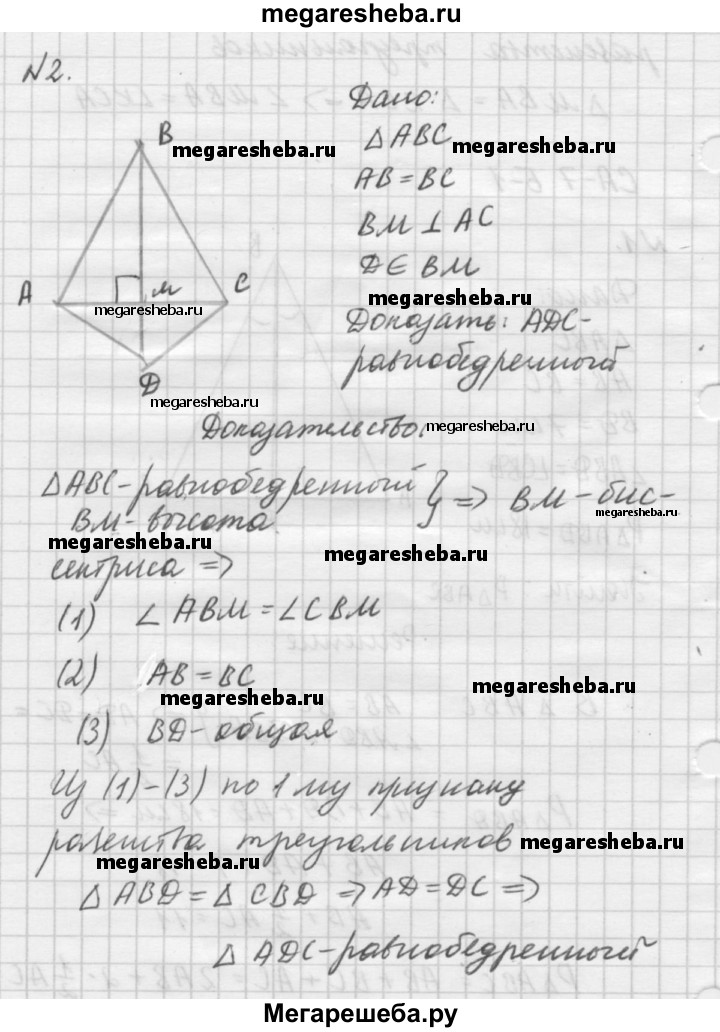 megaresheba.ru
№2.
Дано:
B
megaresheba.ru
△ABC
megaresheba.ru
AB = BC
BM ⊥ AC
D ∈ BM
A
M
C
megaresheba.ru
megaresheba.ru
Доказать: ADC-
равнобедренный
D
megaresheba.ru
Доказательство:
megaresheba.ru
△ABC-равнобедренный } => BM-бис-
BM-высота.
megaresheba.ru
megaresheba.ru
megaresheba.ru
сектриса =>
(1) ∠ABM = ∠CBM
(2) AB = BC
megaresheba.ru
megaresheba.ru
(3) BD-общая
Из (1)-(3) по 1 му признаку
равенства треугольников
megaresheba.ru
megaresheba.ru
△ ABD = △ CBD => AD = DC =>
△ ADC-равнобедренный
Мегарешеба.ру